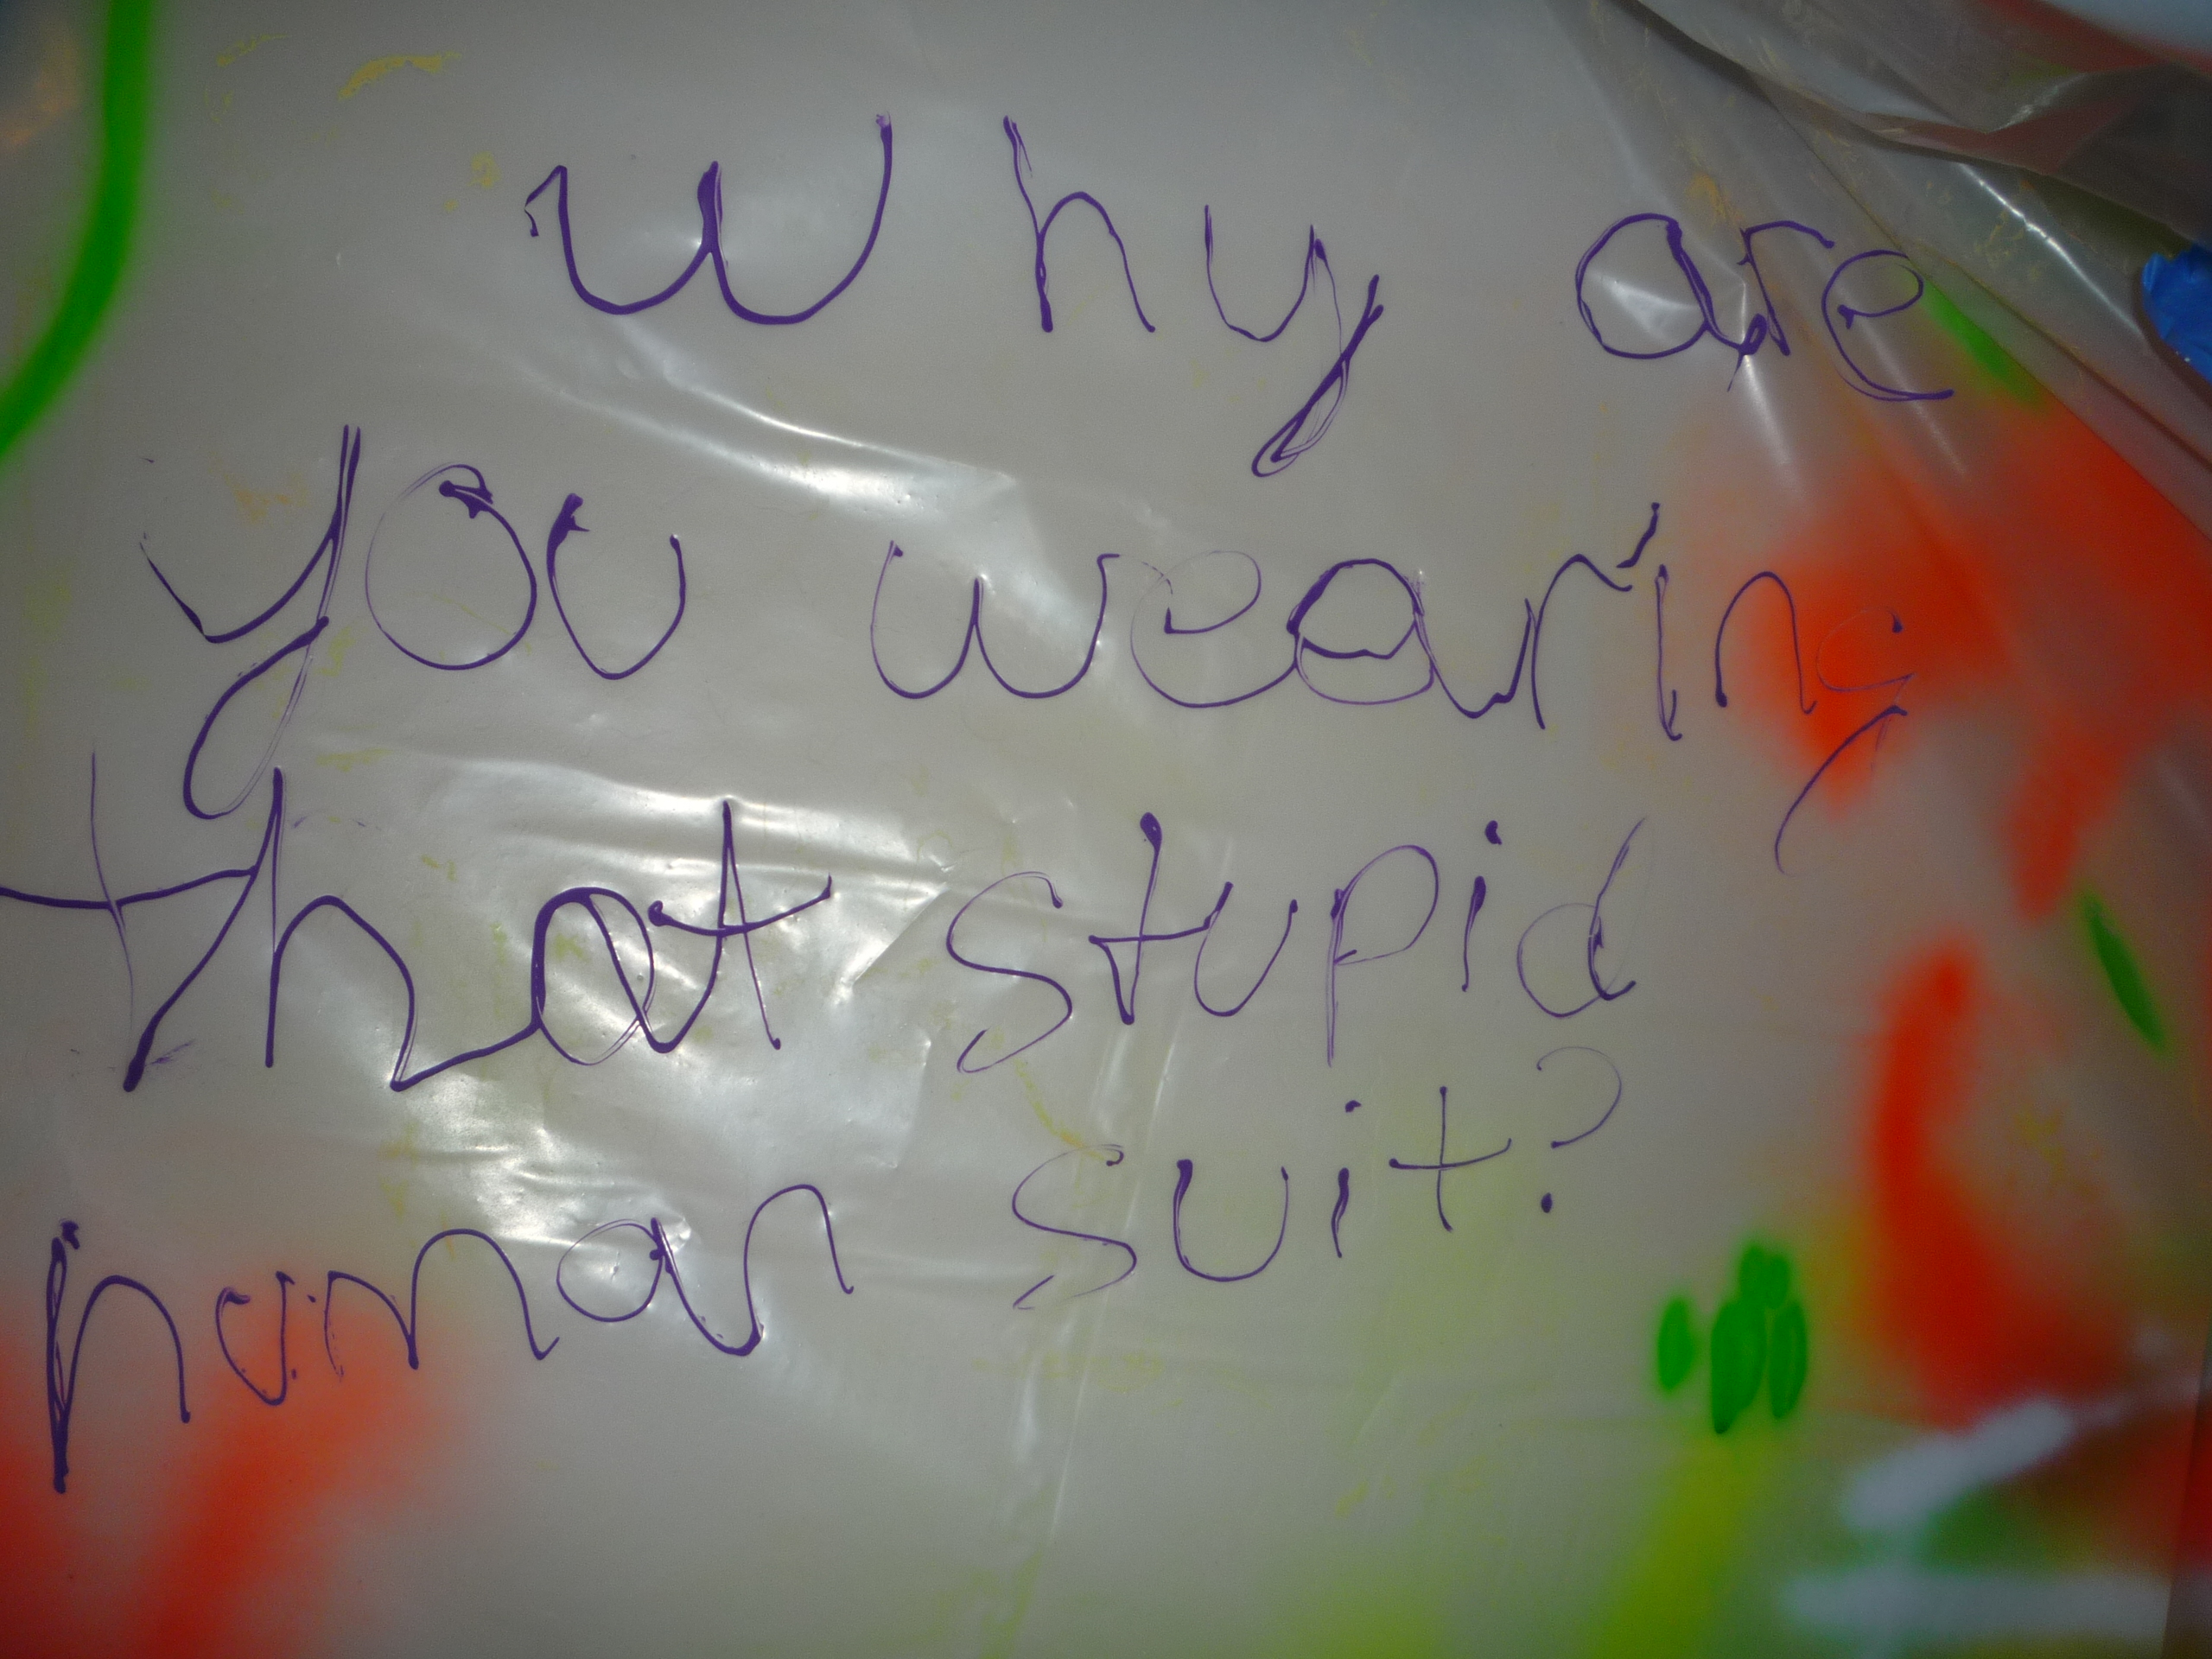 Why are
you wearing
that stupid
human suit?